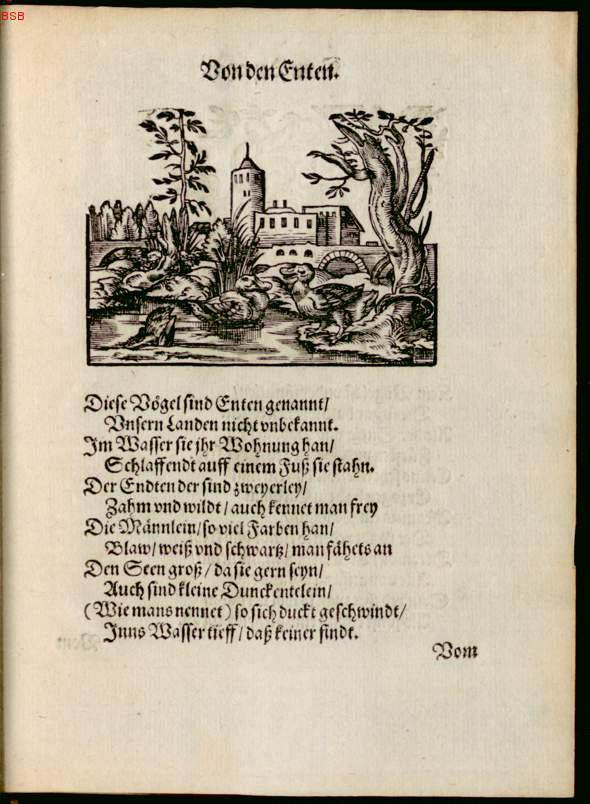 BSB
Von den Enten.
Diese Vögel sind Enten genannt/
Vnsern Landen nicht vnbekannt.
Im Wasser sie jhr Wohnung han/
Schlaffendt auff einem Fuß sie stahn.
Der Endten der sind zweyerley/
Zahm vnd wildt/ auch kennet man frey
Die Männlein/ so viel Farben han/
Blaw/ weiß vnd schwartz/ man fähets an
Den Seen groß/ da sie gern seyn/
Auch sind kleine Dunckentelein/
(Wie mans nennet) so sich duckt geschwindt/
Inns Wasser tieff/ daß keiner findt.
Vom